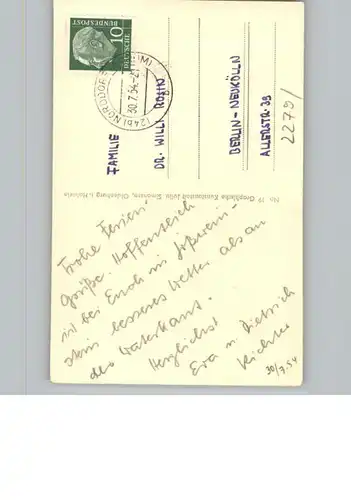 10
DEUTSCHE
BUNDESPOST
(24b) NORDDORF
30.7.54-21
FAMILIE
DR. WILLI ROHN
BERLIN-NEUKÖLLN
ALLERSTR. 39
2279/
No. 19 Graphische Kunstanstalt Julius Simonsen, Oldenburg i. Holstein
Frohe Ferien
grüße. Hoffentlich
ist bei Euch in
stein besseres Wetter als an
der Waterkant.
Herzlichst
Eva u. Dietrich
Richter
30/7.54